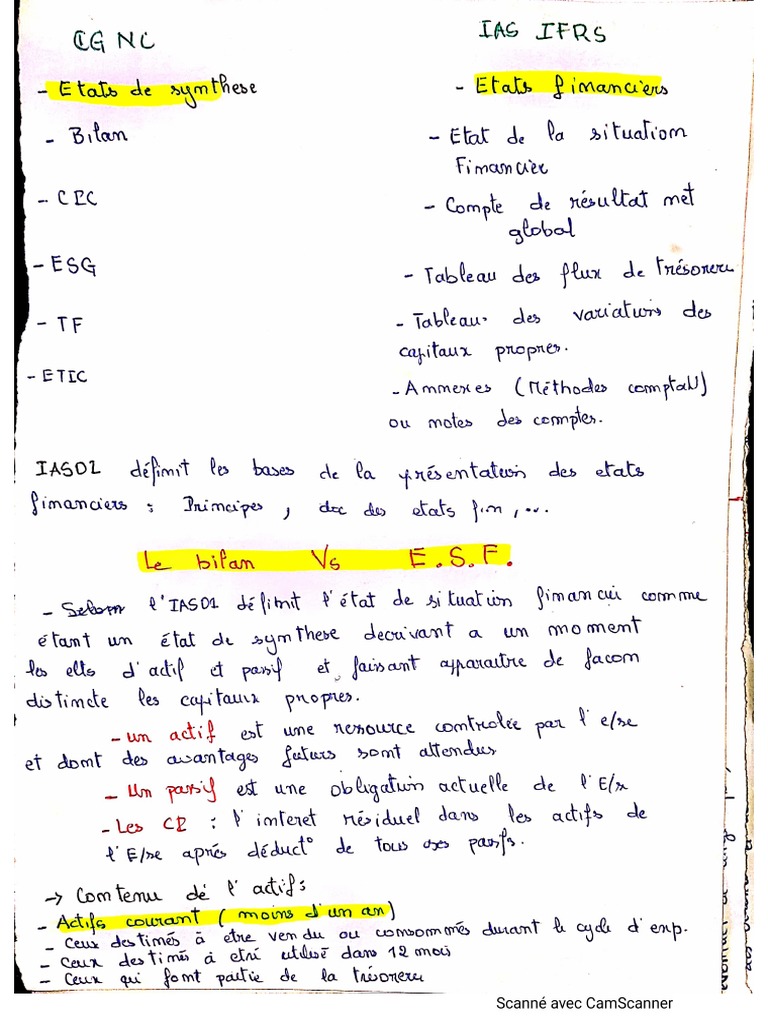 CGNC
IAS IFRS
- Etats de synthese
- Etats financiers
- Bilan
- Etat de la situation
Financier
- CPC
- Compte de résultat net
global
- ESG
- Tableau des flux de trésoreru
- TF
- Tableau des variations des
capitaux propres.
- ETIC
- Annexes (Méthodes comptabl)
ou notes des comptes.
IAS01 définit les bases de la présentation des etats
financiers : Principes, doc des etats fin, ...
Le bilan Vs E.S.F.
- Selon l'IAS01 définit l'état de situation financier comme
étant un état de synthese decrivant a un moment
les elts d'actif et passif et faisant apparaitre de facon
distincte les capitaux propres.
- un actif est une ressource controlée par l'e/se
et dont des avantages futurs sont attendus
- Un passif est une obligation actuelle de l'E/se
- Les CP : l'interet résiduel dans les actifs de
l'E/se aprés déduct° de tous ses passfs.
→ Contenu de l'actifs
- Actifs courant (moins d'un an)
- Ceux destinés à etre vendu ou consommés durant le cycle d'exp.
- Ceux destinés à etre utilisé dans 12 mois
- Ceux qui font partie de la trésoreru
Scanné avec CamScanner